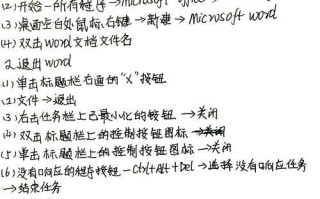 (2)开始→所有程序→Microsoft
(3)桌面空白处鼠标右键→新建→Microsoft word
(4)双击word文档文件名
2.退出word
(1)单击标题栏右面的"X"按钮
(2)文件→退出
(3)右击任务栏上已最小化的按钮→关闭
(4)双击标题栏上的控制按钮图标
(5)单击标题栏上的控制按钮图标→关闭
(6)没有响应的程序按钮-Ctrl+Alt+Del→选择没有响应任务
→结束任务